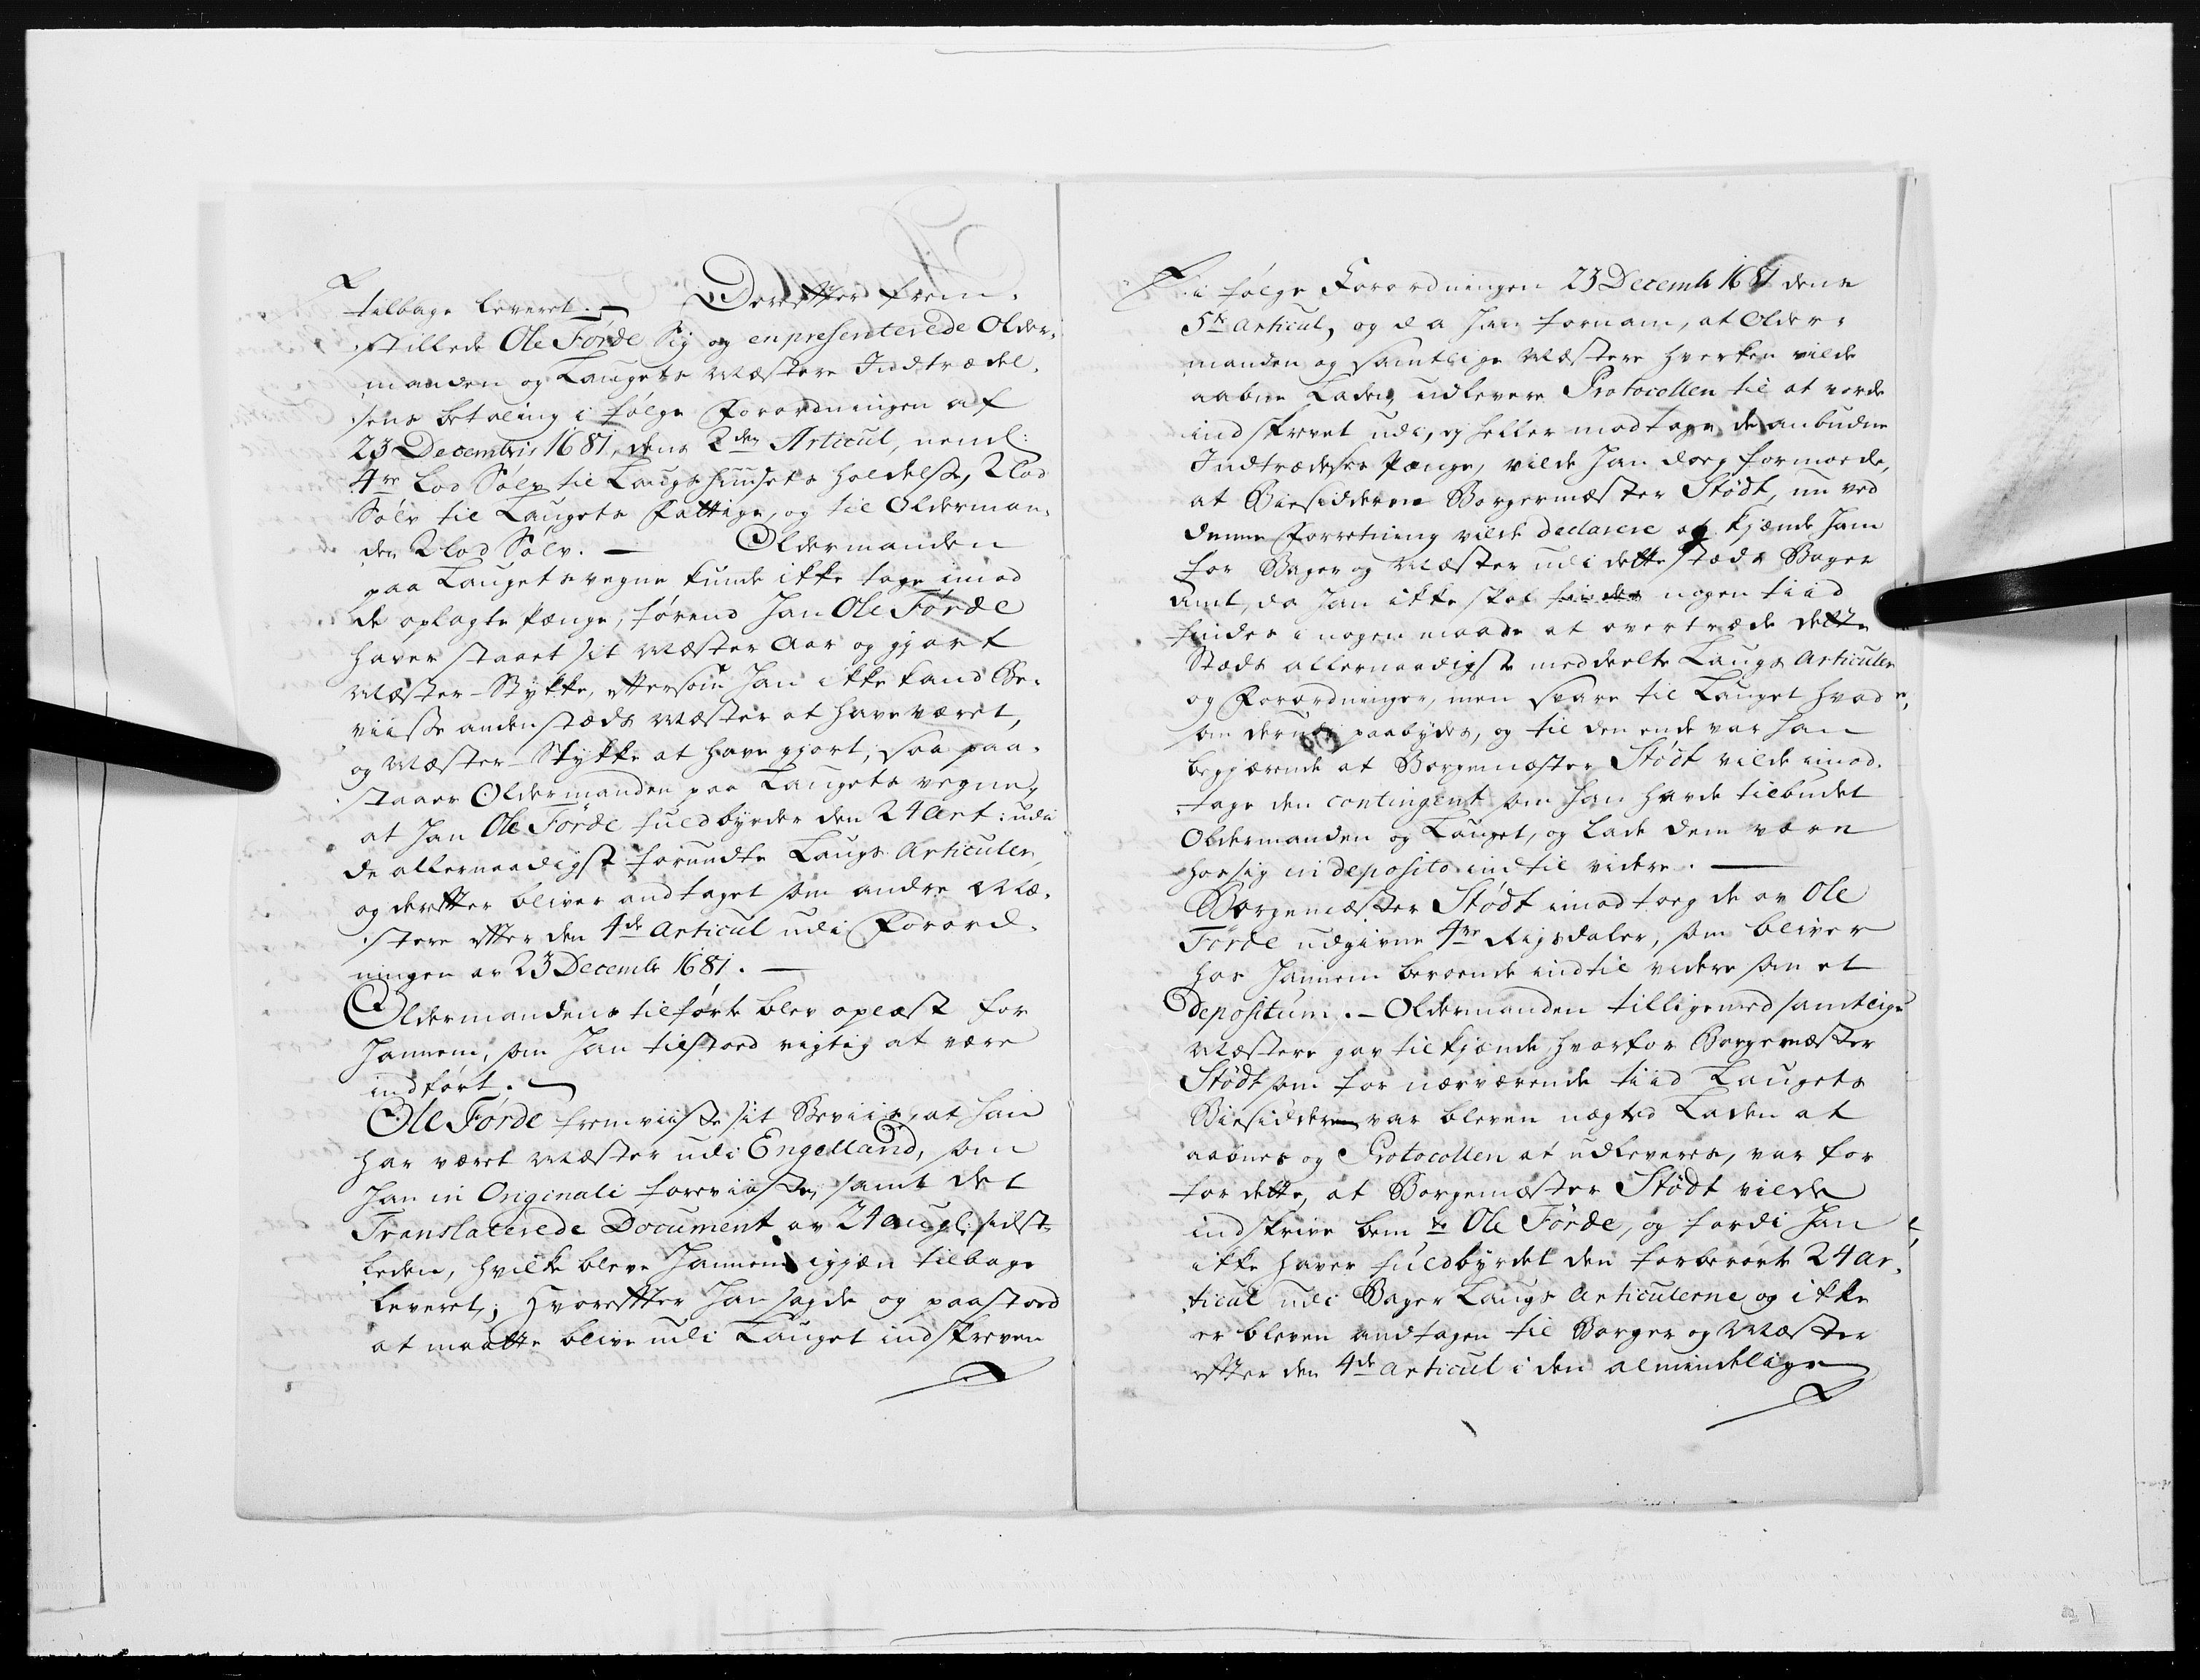 tilbage leveret. — Derefter frem¬
stillede Ole Förde sig og enpresenterede Older¬
manden og Laugets Mæstere Indtrædel¬
sens betaling i følge Forordningen af
23 Decembris 1681, dens 2den Articul, neml:
4re Lod Sølv til Laugs Huusets holdelse, 2 Lod
Sølv til Laugets Fattige, og til Olderman¬
den 2 Lod Sølv. — Oldermanden
paa Laugets vegne kunde ikke tage imod
de oplagte Penge, førend han Ole Förde
haver staaet sit Mæster Aar og gjort
Mæster-Stykke, eftersom han ikke kand Be¬
viisse andenstæds Mæster at have været,
og Mæster-Stykke at have gjort; saa paa¬
staaer Oldermanden paa Laugets vegne,
at han Ole Förde fuldbyrder den 24 Art: udi
de allernaadigst forundte Laugs Articuler,
og derefter bliver andtaget som andre Mæ¬
stere efter den 4de Articul udi Forord¬
ningen av 23 Decembr 1681. —
Oldermandens tilførte blev oplæst for
hannem, som han tilstoed rigtig at være
indført. —
Ole Förde fremviiste sit Beviis, at han
har været Mæster udi Engelland, som
han in Originali foreviiste, samt det
Translaterede Document av 24 Aug: sidst¬
leden, hvilke bleve hannem igjæn tilbage
leveret; Hvorefter han sagde og paastoed
at maatte blive udi Lauget indskreven
i følge Forordningen 23 Decembr 1681 dens
5te Articul, og da han fornam, at Older¬
manden og samtlige Mæstere hverken vilde
aabne Laden, udlevere Protocollen til at vorde
indskrevet udi, ej heller modtage de anbudne
Indtrædelses Penge, vilde han dog formode,
at Biesidderen Borgermæster Stödt, nu ved
denne Forretning vilde declarere og kjænde ham
for Bager og Mæster udi dette stæds Bager
Amt, da han ikke skal findes nogen tiid
findes i nogen maade at overtræde dette
Stæds allernaadigste meddeelte Laugs Articuler
og Forordninger, men svare til Lauget hvad
som derudi paabydes, og til den ende var han
begjærende at Borgemæster Stödt vilde imod¬
tage den contingent som han havde tilbudet
Oldermanden og Lauget, og lade dem være
hos sig in deposito indtil videre. —
Borgemæster Stödt imodtog de av Ole
Förde udgivne 4re Rigsdaler, som bliver
hos hannem beroende indtil videre som et
depositum. — Oldermanden tilligemed samtlige
Mæstere gav tilkjænde hvorfor Borgemæster
Stödt som for nærværende tiid Laugets
Biesiddere var bleven nægted Laden at
aabnes og Protocollen at udleveres, var for
for dette, at Borgemæster Stödt vilde
indskrive bemte Ole Förde, og fordi han
ikke haver fuldbyrdet den forberørte 24 Ar¬
ticul udi Bager Laugs Articulerne og ikke
er bleven andtagen til Borger og Mæster
efter den 4de Articul i den almindelige